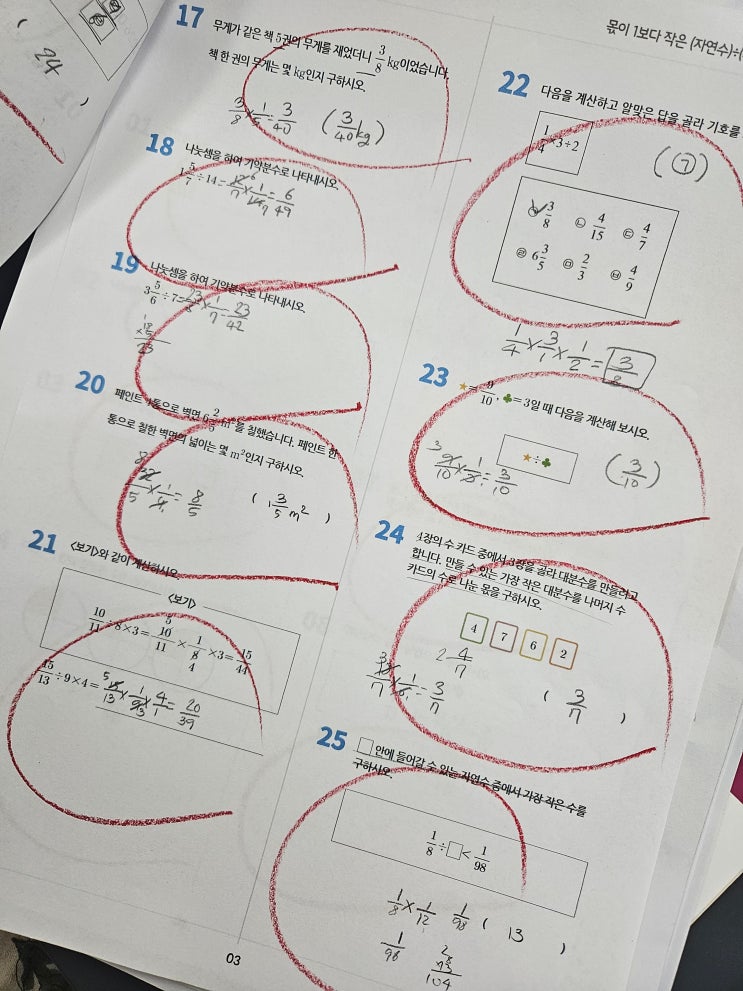 24
17 무게가 같은 책 5권의 무게를 재었더니 3/8 kg이었습니다.
책 한 권의 무게는 몇 kg인지 구하시오.
3/8 × 1/5 = 3/40 (3/40 kg)
18 나눗셈을 하여 기약분수로 나타내시오.
1 5/7 ÷ 14 = 12/7 × 1/14 = 6/49
19 나눗셈을 하여 기약분수로 나타내시오.
3 5/6 ÷ 7 = 23/6 × 1/7 = 23/42
23
20 페인트 4통으로 벽면 6 2/5 m²를 칠했습니다. 페인트 한
통으로 칠한 벽면의 넓이는 몇 m²인지 구하시오.
8
32/5 × 1/4 = 8/5 ( 1 3/5 m² )
21 <보기>와 같이 계산하시오.
<보기>
10/11 ÷ 8 × 3 = 10/11 × 1/8 × 3 = 15/44
5
4
15/13 ÷ 9 × 4 = 15/13 × 1/9 × 4/1 = 20/39
5
3
03
몫이 1보다 작은 (자연수)÷(
22 다음을 계산하고 알맞은 답을 골라 기호를
1/4 × 3 ÷ 2
(㉠)
㉠ 3/8 ㉡ 4/15 ㉢ 4/7
㉣ 6 3/5 ㉤ 2/3 ㉥ 4/9
1/4 × 3/1 × 1/2 = 3/8
23 ★ = 9/10, ♣ = 3일 때 다음을 계산해 보시오.
★ ÷ ♣
3
9/10 × 1/3 = 3/10 (3/10)
24 4장의 수 카드 중에서 3장을 골라 대분수를 만들려고
합니다. 만들 수 있는 가장 작은 대분수를 나머지 수
카드의 수로 나눈 몫을 구하시오.
4 7 6 2
2 4/7
3
18/7 × 1/6 = 3/7 ( 3/7 )
25 □ 안에 들어갈 수 있는 자연수 중에서 가장 작은 수를
구하시오.
1/8 ÷ □ < 1/98
1/8 × 1/12 1/98 ( 13 )
1/96
104